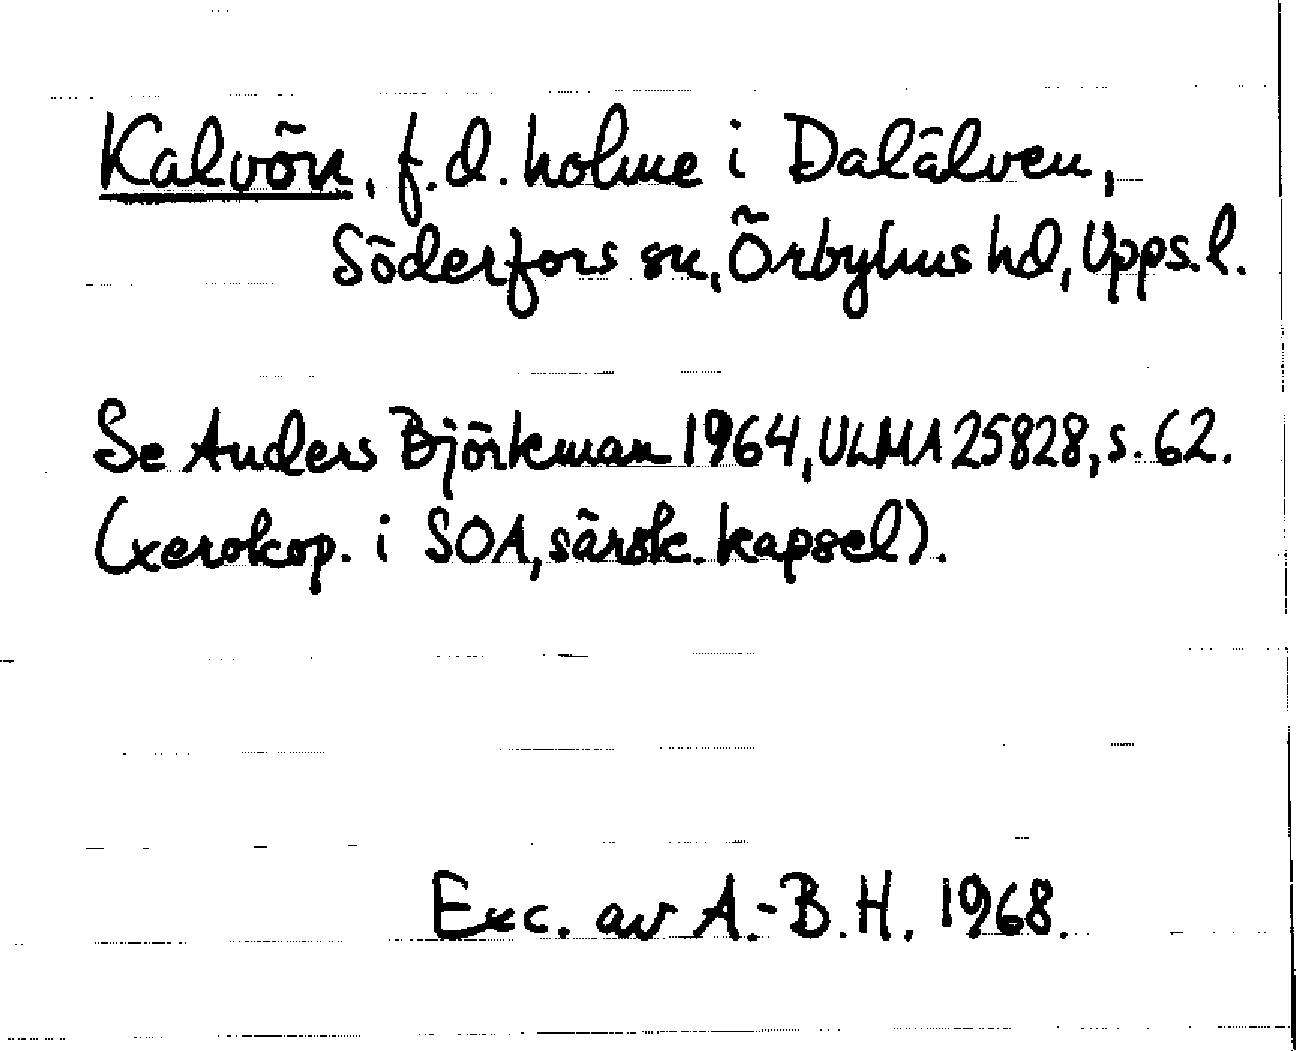 Kalvön, f.d. holme i Dalälven,
Söderfors sn, Örbyhus hd, Upps.l.
Se Anders Björkman 1964, ULMA 25828, s. 62.
(xerokop. i SOA, särsk. kapsel).
Exc. av A.-B.H. 1968.